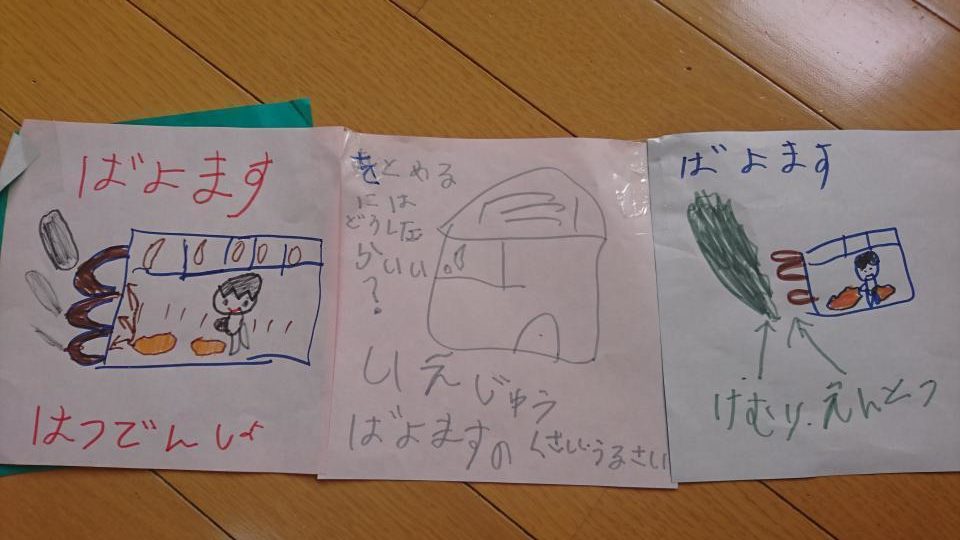 ばよます
はつでんしょ
をとめる
には
どうした
らいい
?
いえじゅう
ばよますの くさい・うるさい
ばよます
けむり.えんとつ